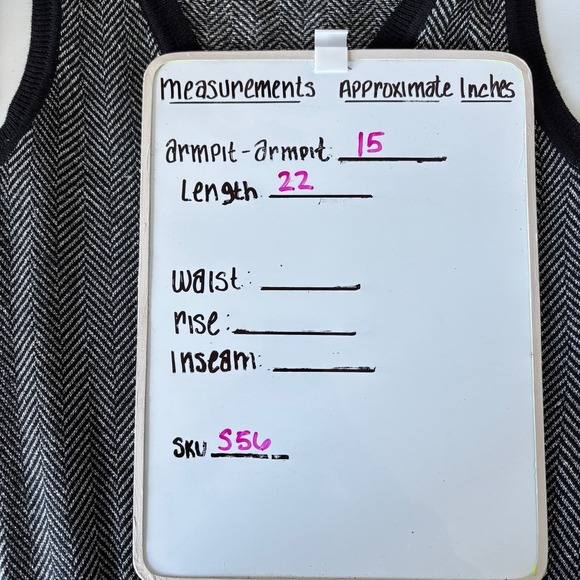 measurements Approximate Inches
armpit-armpit: 15
Length 22
waist:
rise:
Inseam:
SKU S56